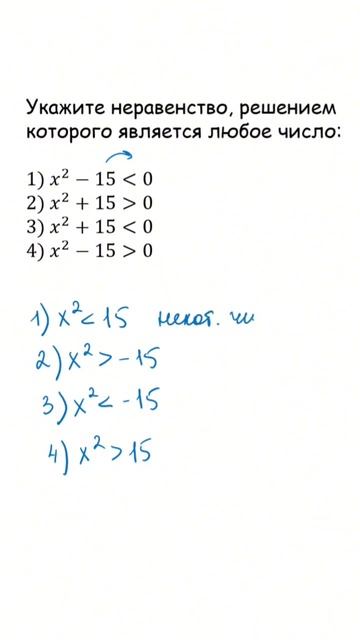 Укажите неравенство, решением
которого является любое число:
1) x² − 15 < 0
2) x² + 15 > 0
3) x² + 15 < 0
4) x² − 15 > 0
1) x² < 15 некот. чи
2) x² > -15
3) x² < -15
4) x² > 15